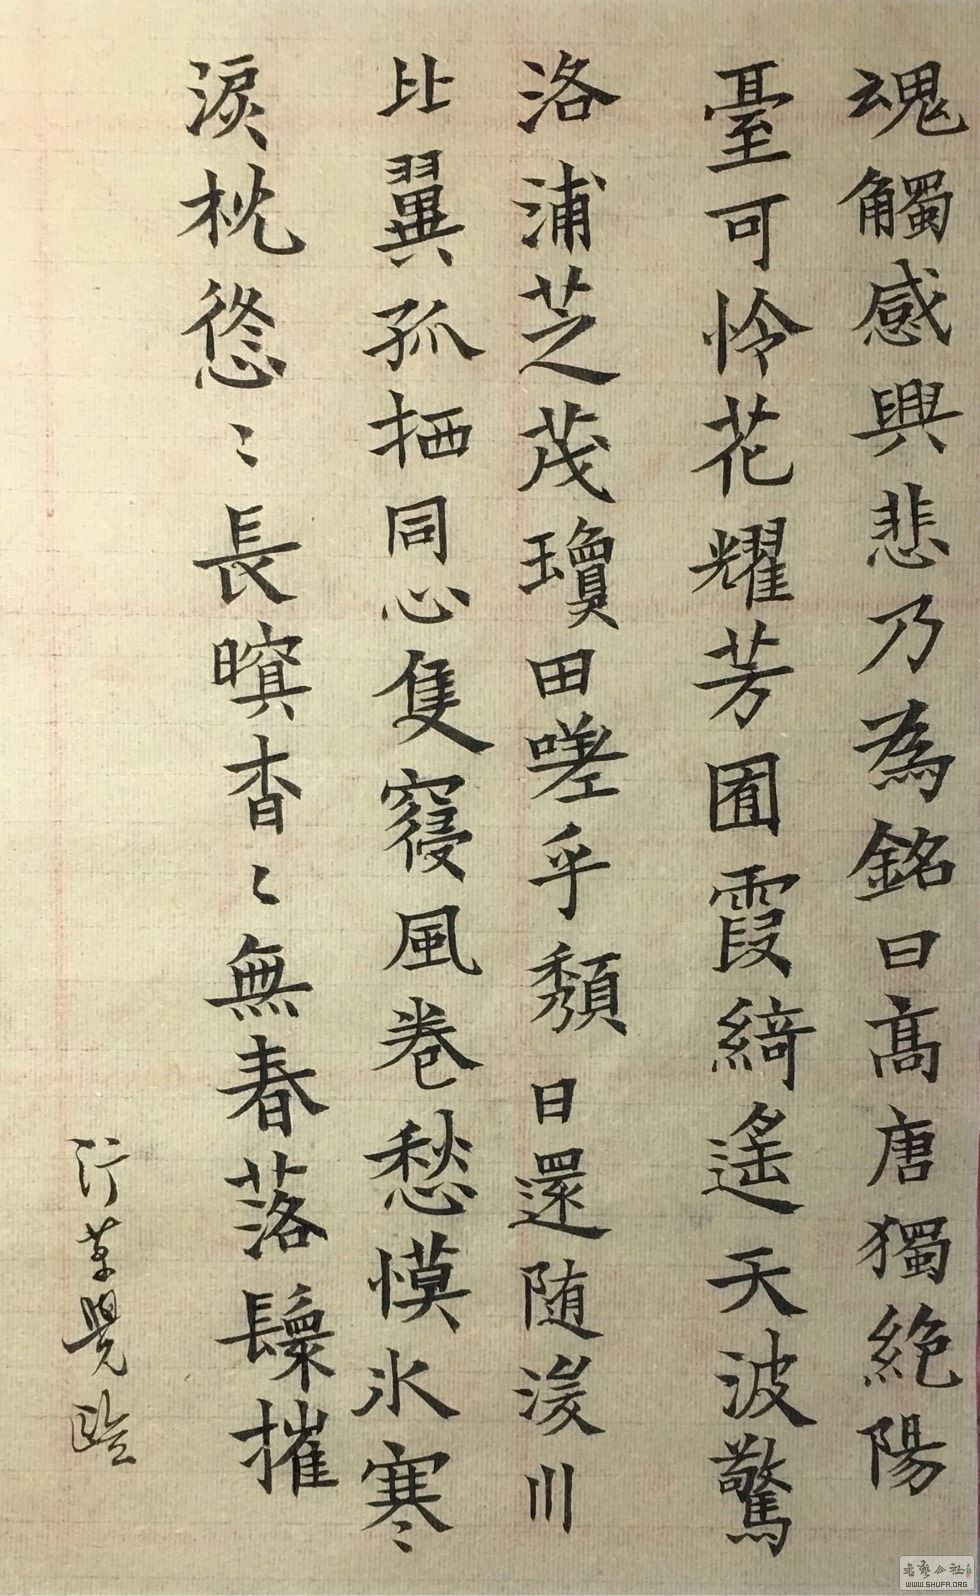 魂觸感興悲乃為銘曰高唐獨絕陽
臺可怜花耀芳囿霞綺遙天波驚
洛浦芝茂瓊田嗟乎頹日還随浚川
比翼孤栖同心隻寢風卷愁慔氷寒
淚枕悠〻長暝杳〻無春落鬟摧
臨
WWW.SHUFA.ORG